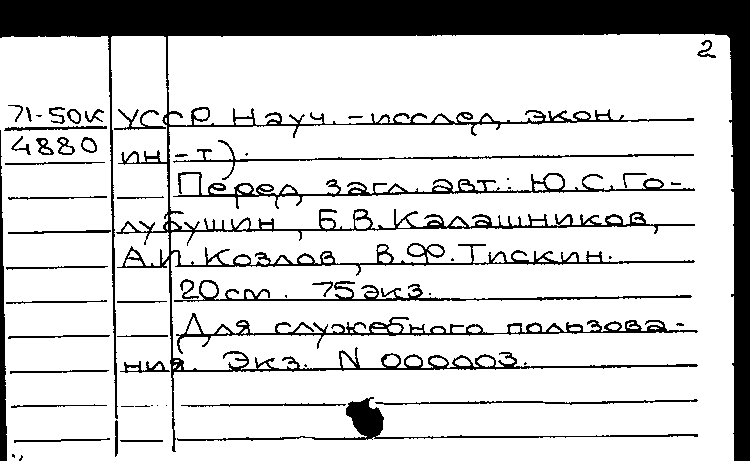 2
71-50К УССР. Науч.-исслед. экон.
4880 ин-т).
Перед загл. авт.: Ю.С.Го-
лубушин, Б.В.Калашников,
А.И.Козлов, В.Ф.Тискин.
20cm. 75 экз.
Для служебного пользова-
ния. Экз. N 000003.